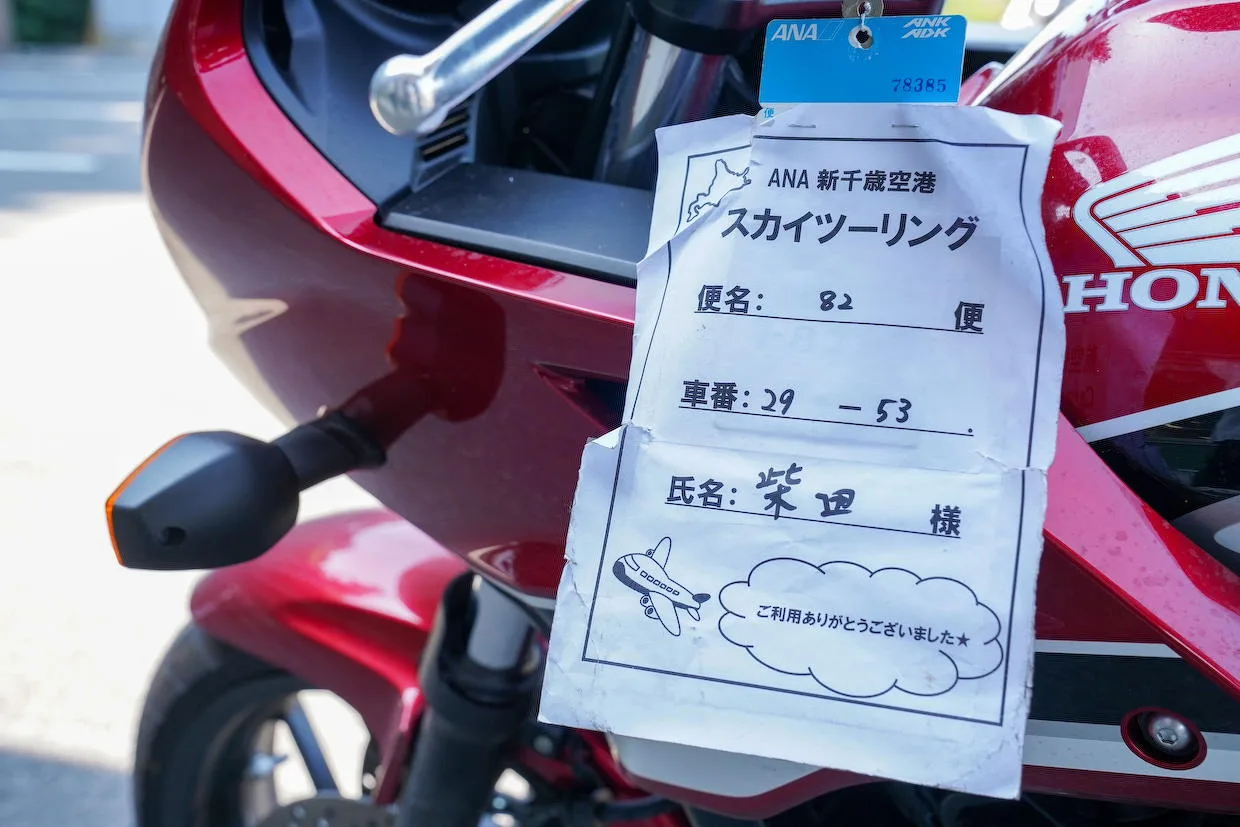 ANA
ANK
ADK
78385
便
ANA 新千歳空港
スカイツーリング
便名: 82 便
車番: 29 - 53 .
氏名: 柴田 様
ご利用ありがとうございました★
HON